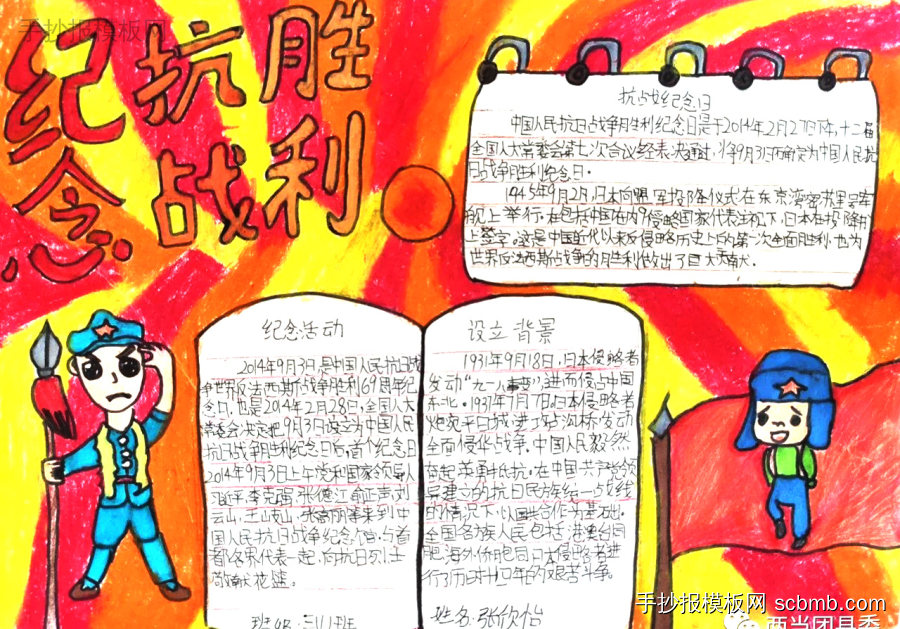 手抄报模板网
纪念
抗战
胜利
抗战纪念日
中国人民抗日战争胜利纪念日是于2014年2月27日下午,十二届
全国人大常委会第七次会议经表决通过,将9月3日确定为中国人民抗
日战争胜利纪念日。
1945年9月2日,日本向盟军投降仪式在东京湾密苏里号军
舰上举行。在包括中国在内9
上签字。这是中国近代以来反侵略历史上的第一次全面胜利,也为
世界反法西斯战争的胜利做出了巨大贡献。
纪念活动
2014年9月3日,是中国人民抗日战
争世界反法西斯战争胜利69周年纪
念日,也是2014年2月28日,全国人大
常委会决定把9月3日设立为中国人民
抗日战争胜利纪念日后,首个纪念日
2014年9月3日上午党和国家领导人
习近平,李克强,张德江,俞正声,刘
云山,王岐山,张高丽等来到中
国人民抗日战争纪念馆,与首
都各界代表一起,向抗日烈士
敬献花篮。
班级:三(1)班
设立背景
1931年9月18日,日本侵略者
发动“九一八事变”,进而侵占中国
东北。1937年7月7日,日本侵略者
炮轰宛平城,进攻卢沟桥,发动
全面侵华战争。中国人民毅然
奋起,英勇抵抗。在中国共产党领
导建立的抗日民族统一战线
的情况下,以国共合作为基础,
全国各族人民,包括港澳台同
胞,海外侨胞,同日本侵略者进
行了历时十四年的艰苦斗争。
姓名:张欣怡
手抄报模板网 scbmb.com
西当团县委